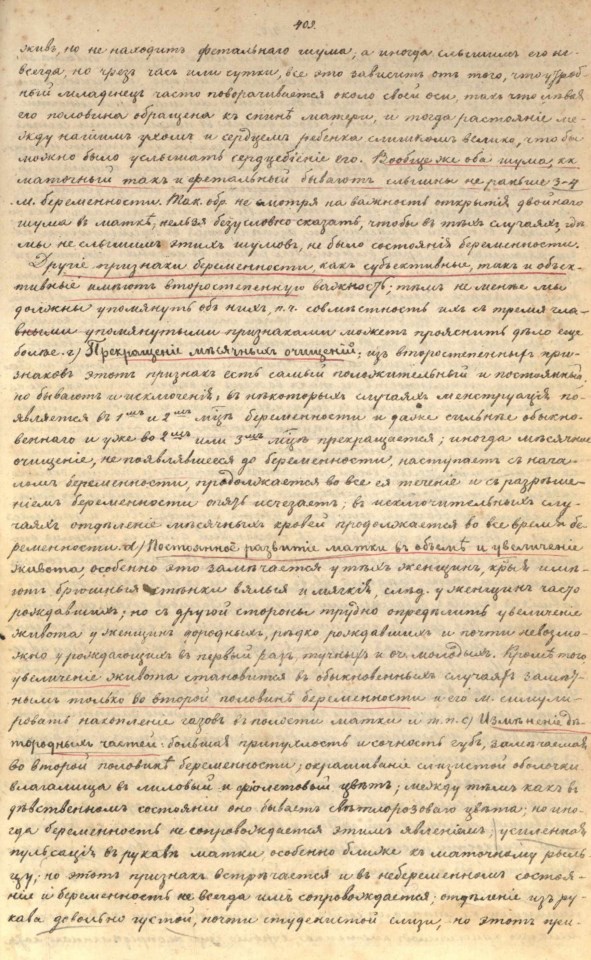 409.
живъ, но не находитъ фетальнаго шума, а иногда слышимъ его не
всегда, но чрезъ часъ или сутки, все это зависитъ отъ того, что утроб-
ный младенецъ часто поворачивается около своей оси, такъ что лѣвая
его половина обращена къ спинѣ матери, и тогда растояніе ме-
жду нашимъ ухомъ и сердцемъ ребенка слишкомъ велико, что бы
можно было услышать сердцебіеніе его. Вообще же оба шума, кк
маточный такъ и фетальный бываютъ слышны не раньше 3-4
м. беременности. Так. обр. не смотря на важность открытія двойнаго
шума въ маткѣ, нельзя безусловно сказать, чтобы въ тѣхъ случаяхъ, гдѣ
мы не слышимъ этихъ шумовъ, не было состоянія беременности.
Другіе признаки беременности, какъ субъективные, такъ и объек-
тивные имѣютъ второстепенную важность; тѣмъ не менѣе мы
должны упомянуть объ нихъ, п. ч. совмѣстность ихъ съ тремя гла-
вными упомянутыми признаками можетъ прояснить дѣло еще
болѣе. г) Прекращеніе мѣсячныхъ очищеній; изъ второстепенных при-
знаковъ этотъ признакъ есть самый положительный и постоянный,
но бываютъ и исключенія; въ нѣкоторыхъ случаяхъ менструація по-
является въ 1мъ и 2мъ мѣсяцѣ беременности и даже сильнѣе обыкно-
веннаго и уже во 2мъ или 3мъ прекращается; иногда мѣсячное
очищеніе, не появлявшееся до беременности, наступаетъ съ нача-
ломъ беременности, продолжается во все ея теченіе и съ разрѣше-
ніемъ беременности опять исчезаетъ; въ исключительныхъ слу-
чаяхъ отдѣленіе мѣсячныхъ кровей продолжается во все время бе-
ременности. d) Постоянное развитіе матки въ объемѣ и увеличеніе
живота, особенно это замѣчается у тѣхъ женщинъ, крые имѣ-
ютъ брюшныя стѣнки вялыя и мягкія, слѣд. у женщинъ часто
рождавшихъ; но съ другой стороны трудно опредѣлить увеличеніе
живота у женщинъ дородныхъ, рѣдко рождавшихъ и почти невозмо-
жно у рождающихъ въ первый разъ, тучныхъ и оч. молодыхъ. Кромѣ того
увеличеніе живота становится въ обыкновенныхъ случаяхъ замѣт-
нымъ только во второй половинѣ беременности и его м. симули-
ровать накопленіе газовъ въ полости матки и т. п. е) Измѣненіе дѣ-
тородныхъ частей: большая припухлость и сочность губъ, замѣчаемая
во второй половинѣ беременности; окрашиваніе слизистой оболочки
влагалища въ лиловый и фіолетовый цвѣтъ; между тѣмъ какъ въ
дѣвственномъ состояніе оно бываетъ свѣтлорозоваго цвѣта; но ино-
гда беременность не сопровождается этимъ явленіемъ; усиленная
пульсація въ рукавѣ матки особенно ближе къ маточному рыль-
цу; но этотъ признакъ встрѣчается и въ небеременномъ состоя-
ніе и беременность не всегда имъ сопровождается; отдѣленіе изъ ру-
кава довольно густой, почти студенистой слизи, но этотъ при-